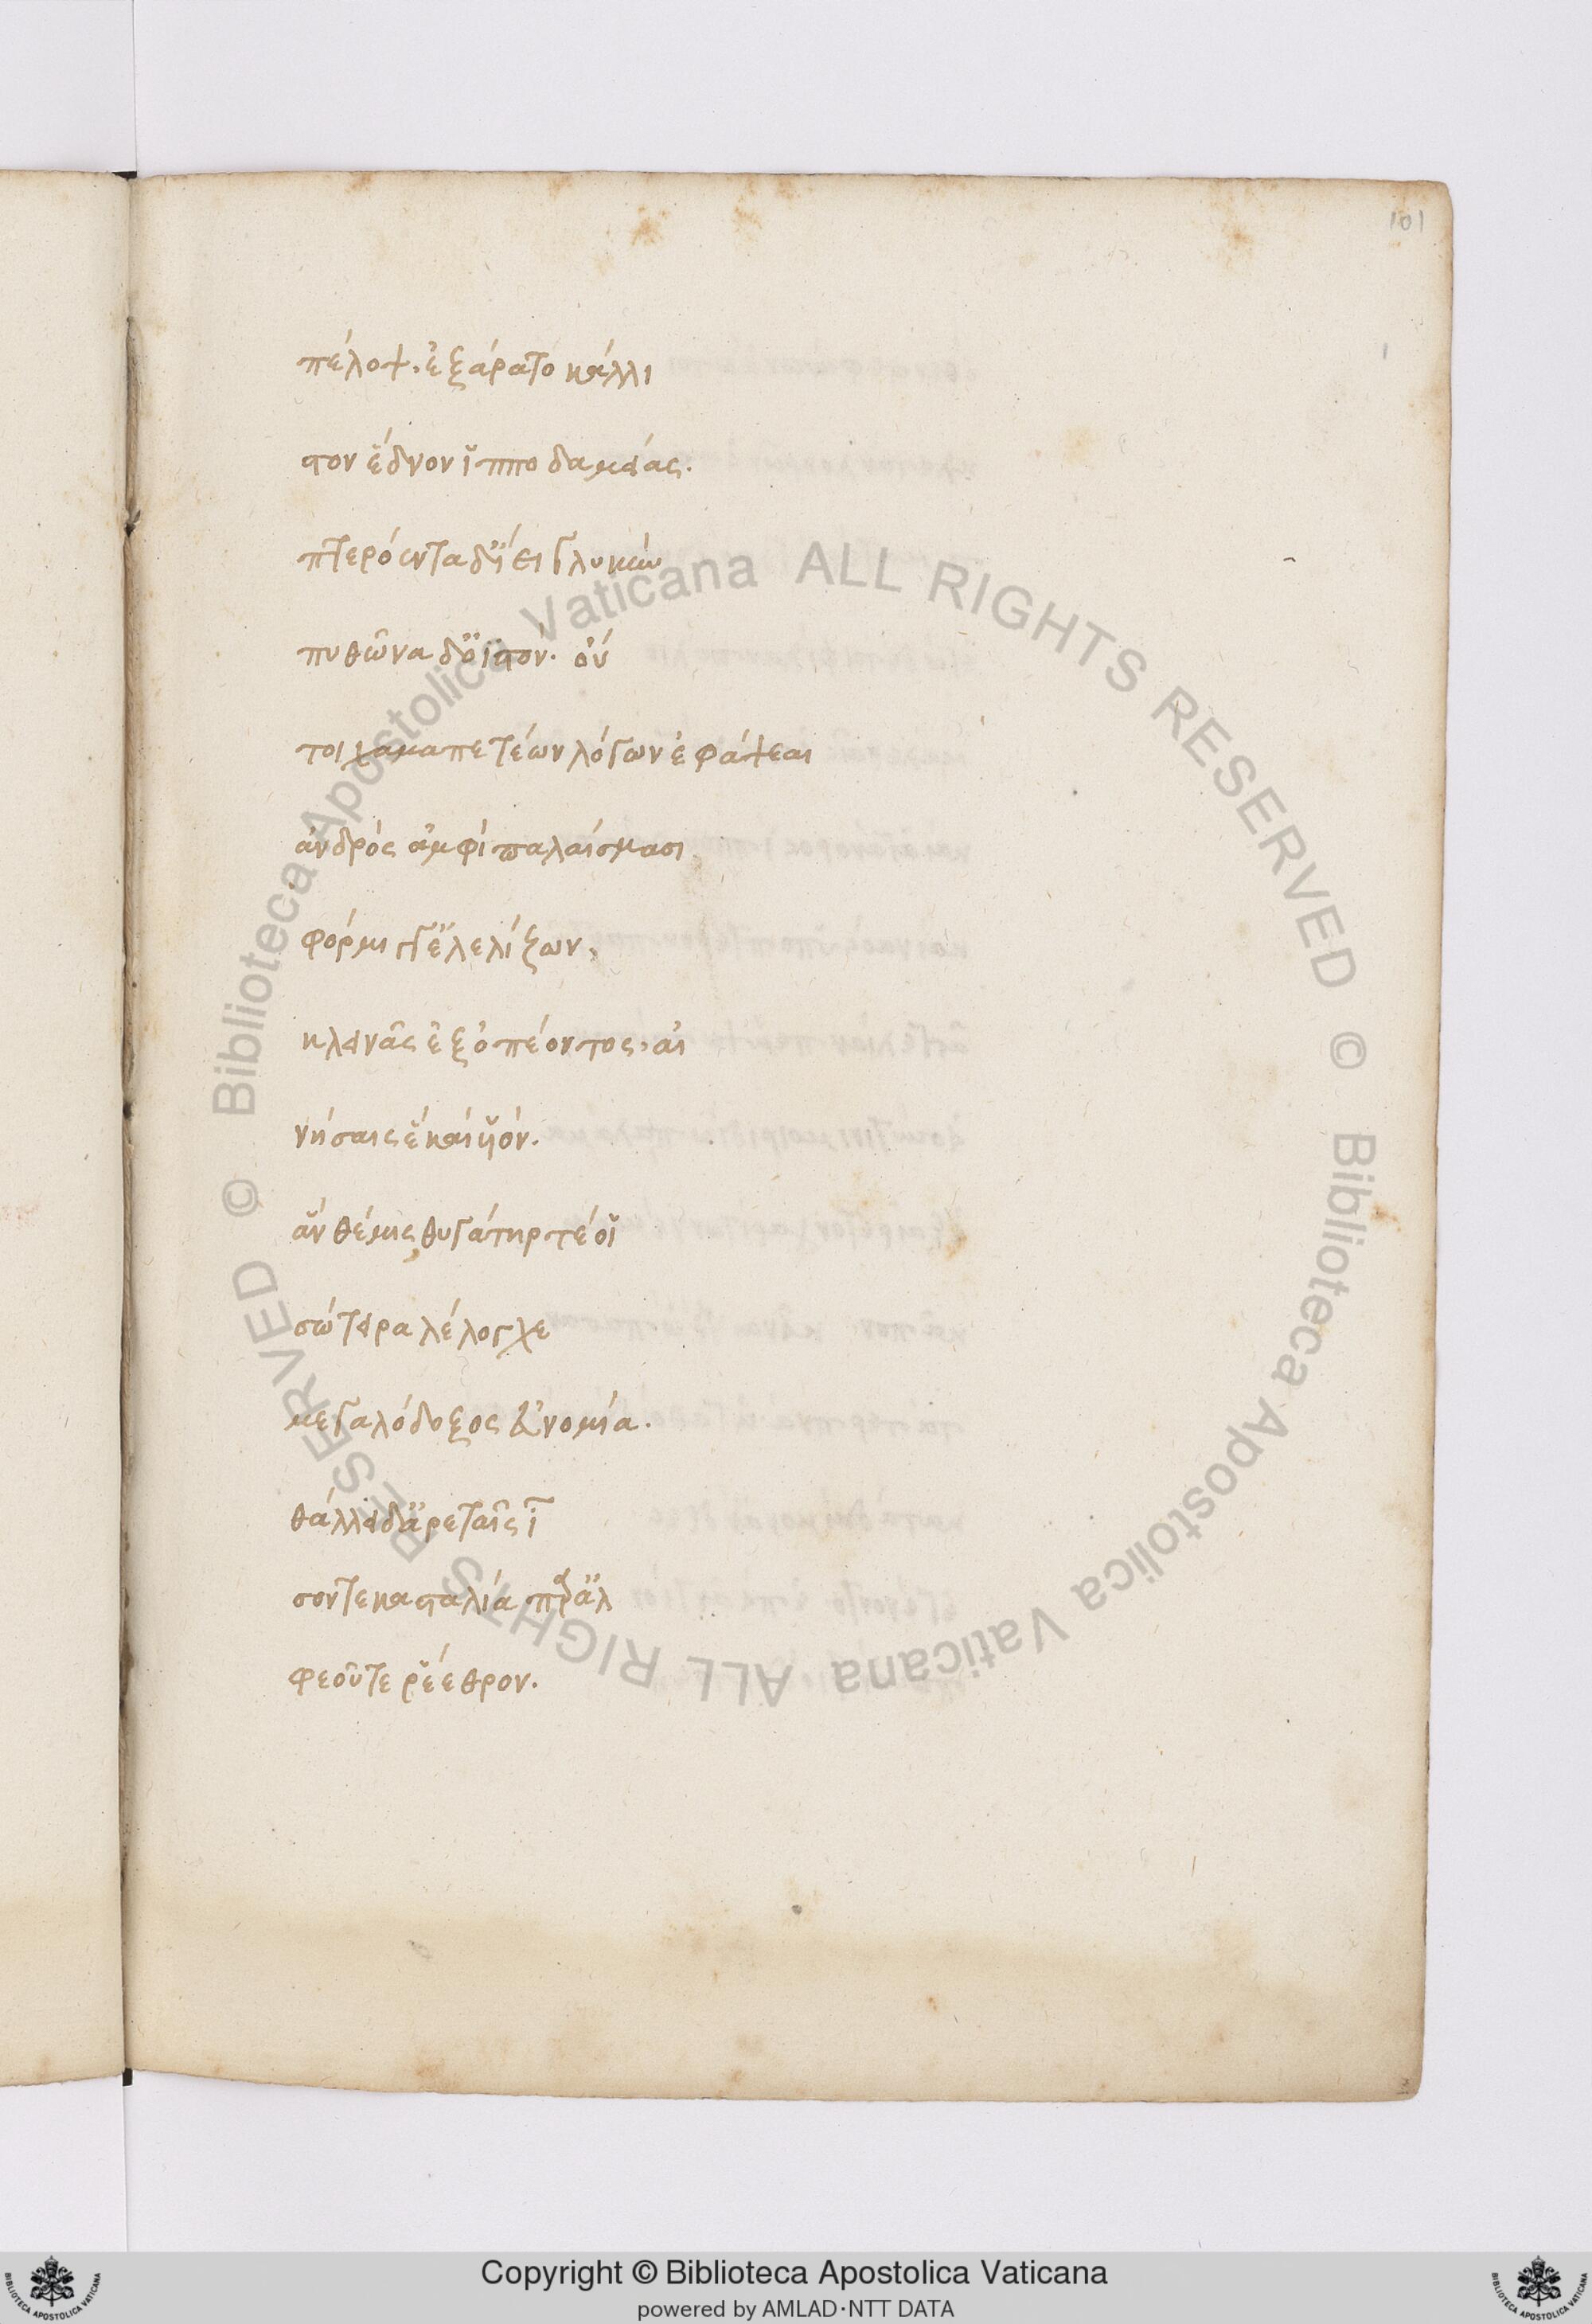 101
πέλοψ. ἐξάρατο κάλλι
στον ἕδνον ἱπποδαμείας.
πτερόεντα δ' ἵει γλυκὺν
πυθῶνα δ' ὀϊστόν. οὔ
τοι χαμαιπετέων λόγων ἐφάψεαι
ἀνδρὸς ἀμφὶ παλαίσμασι
φόρμιγγ' ἐλελίξων,
κλεινᾶς ἐξ ὀπέοντος. αἰ
νήσαις ἓ καὶ υἱόν.
ἃν θέμις θυγάτηρ τέ οἱ
σώτειρα λέλογχε
μεγαλόδοξος εὐνομία.
θάλλει δ' ἀρεταῖς ἶ
σόν τε κασταλία παρ' ἀλ
φεοῦ τε ῥέεθρον.
Biblioteca Apostolica Vaticana ALL RIGHTS RESERVED ©
Biblioteca Apostolica Vaticana ALL RIGHTS RESERVED ©
Copyright © Biblioteca Apostolica Vaticana
powered by AMLAD·NTT DATA
BIBLIOTECA APOSTOLICA VATICANA
BIBLIOTECA APOSTOLICA VATICANA